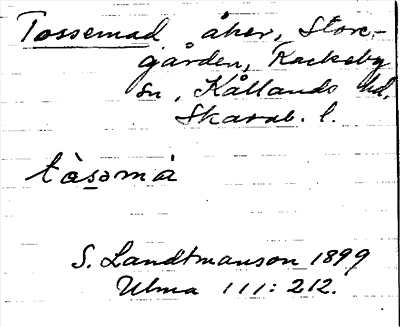 Tossemad åker, Store-
gården, Rackeby
sn, Kållands hd.
Skarab. l.
tὰsəmá
S. Landtmanson 1899
Ulma 111:212.